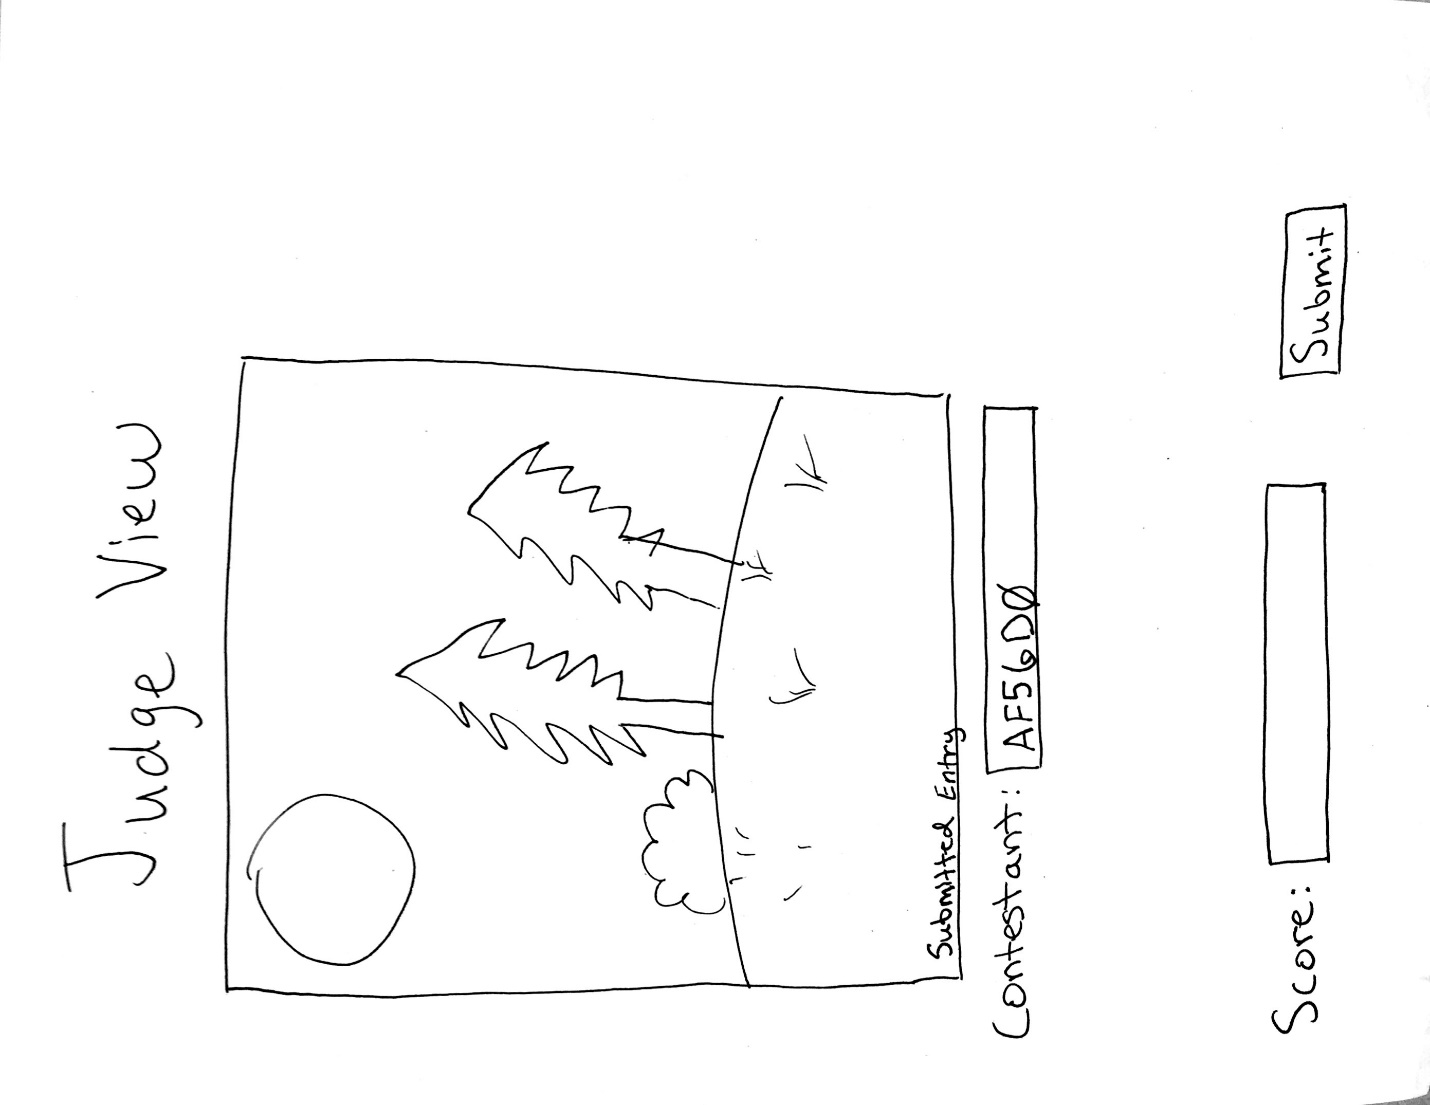 Judge View
Submitted Entry
Contestant: AF56DØ
Score:
Submit